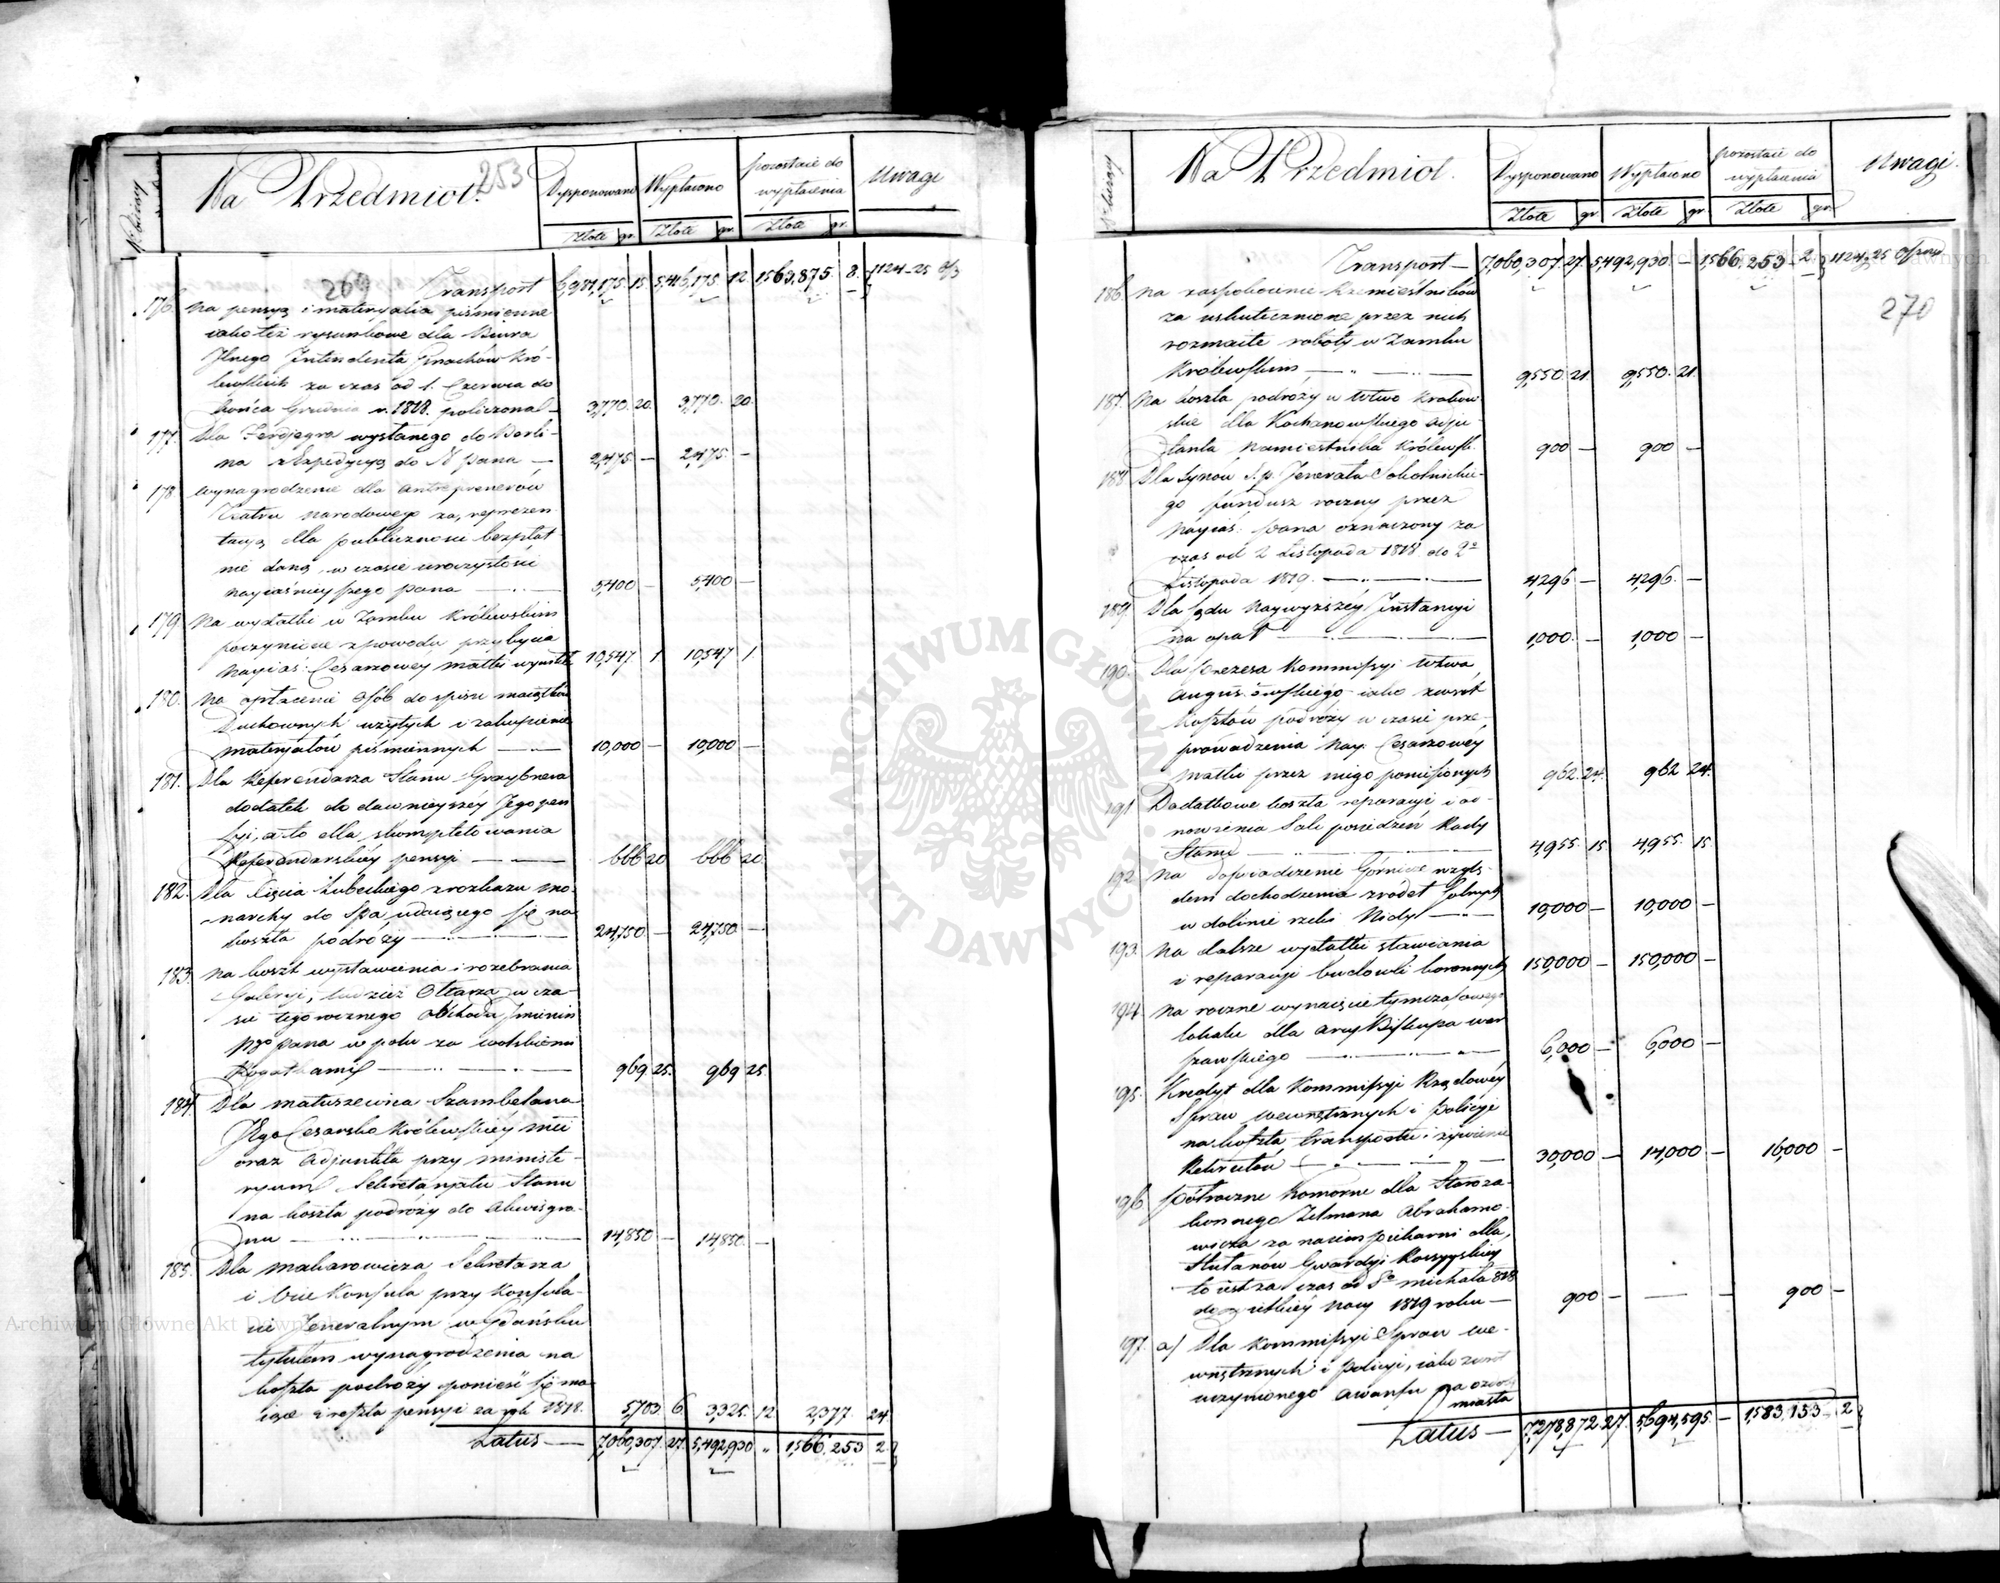 N. bieżący
Na Przedmiot.
253
Dysponowano
Wypłacono
pozostaie do wypłacenia
Uwagi
Złote gr. Złote gr. Złote gr.
269
Transport 6,981,175. 15. 5,416,175 12. 1,563,875. 8. 1124-25
176. Na pensyą i materyalia piśmienne
iako też rysunkowe dla Biura
Jlnego Intendenta Gmachów Kró-
lewskich za czas od 1. Czerwca do
końca Grudnia r. 1818. policzone 3,770. 20. 3,770. 20.
177. Dla Feldjegra wysłanego do Berli-
na z Expedycyą do N Pana — 2,475. — 2,475. —
178. Wynagrodzenie dla Antreprenerów
Teatru Narodowego za, reprezen
tacyą dla publicznosci bezpłat-
nie daną, w czasie uroczystości
Nayiaśnieyszego Pana — 5,400 — 5,400 —
179 Na wydatki w Zamku Królewskim
poczynione z powodu przybycia
Nayias: Cesarzowey Matki 10,547. 1 10,547 1
180. Na opłacenie osób do spisu maiątków
Duchownych użytych i zakupienie
materyałów piśmiennych — 10,000 — 10,000 —
181. Dla Referendarza Stanu Grzybnera
dodatek do dawnieyszéy Jego pen
syi, a to dla skompletowania
Referendarskiéy pensyi — 666 20 666 20
182. Dla Xięcia Lubeckiego z rozkazu Mo-
narchy do Spa udaiącego się na
koszta podróży — 24,750 — 24,750 —
183. Na koszt wystawienia i rozebrania
Galeryi, tudzież Ołtarza w cza-
sie tegorocznego Obchodu Imienin
Ngo Pana w polu za wolskiemi
Rogatkami — 969 25. 969 25.
184. Dla Matuszewica Szambelana
Jego Cesarsko Królewskiéy Mci
oraz Adjunkta przy Ministe-
ryum Sekretaryatu Stanu
na koszta podróży do Akwisgra-
nu — 14,850 — 14,850. —
185. Dla Makarowicza Sekretarza
i Vice Konsula przy Konsula-
cie Jeneralnym w Gdańsku
tytułem wynagrodzenia na
koszta podróży ponieść się ma-
iące i reszta pensyi za rok 1818. 5,703 6. 3,325. 12 2,377. 24
Latus — 7,060,307. 27. 5,492,930 " 1,566,253 2.
N. bieżący
Na Przedmiot.
Dysponowano
Wypłacono
pozostaie do wypłacenia
Uwagi.
Złote gr. Złote gr. Złote gr.
270
Transport — 7,060,307. 27. 5,492,930. — 1,566,253 — 2. 1124, 25
186. Na zaspokoienie Rzemieślników
za uskutecznione przez nich
rozmaite roboty w Zamku
Królewskim — 9,550. 21. 9,550. 21.
187. Na koszta podróży w Wtwo Krakow
skie dla Kochanowskiego Adju-
tanta Namiestnika Królewsk. 900 — 900 —
188. Dla Synów S. p. Jenerała Sokolnickie-
go fundusz roczny przez
Nayias: Pana oznaczony za
czas od 2 Listopada 1818 do 2go
Listopada 1819. — 4,296 — 4,296. —
189. Dla Sądu Naywyższéy Instancyi
na opał — 1,000. — 1,000 —
190. Dla Prezesa Kommissyi Wtwa
Augustowskiego iako zwrot
kosztów podróży w czasie prze-
prowadzenia Nay. Cesarzowéy
Matki przez niego poniesionych 962 24. 962 24.
191 Dodatkowe koszta reparacyi i od-
nowienia Sali posiedzeń Rady
Stanu — 4,955. 15 4,955. 15
192 Na doświadczenie Górnicze wzglę-
dem dochodzenia zrodeł Solnych
w dolinie rzeki Nidy — 10,000 — 10,000 —
193. Na dalsze wydatki stawiania
i reparacyi budowli koronnych 150,000 — 150,000 —
194 Na roczne wynaięcie tymczasowego
lokalu dla Arcy Biskupa War
szawskiego — 6,000 — 6,000 —
195. Kredyt dla Kommissyi Rządowéy
Spraw wewnętrznych i Policyi
na koszta transportu i żywienia
Rekrutów — 30,000 — 14,000 — 16,000 —
196. Półroczne Komorne dla Staroza-
konnego Zelmana Abrahamo-
wicza za naiem piekarni dla,
Ułanów Gwardyi Rossyyskiéy
to iest za czas od Sgo Michała 818
do Wielkiéy Nocy 1819 roku — 900 — — — 900 —
197. a) Dla Kommissyi Spraw We-
wnętrznych i Policyi, iako zwrot
uczynionego awansu na ozdoby
miasta
Latus — 7,278,872. 27. 5,694,595. — 1,583,153 — 2
ARCHIWUM GŁÓWNE AKT DAWNYCH
Archiwum Główne Akt Dawnych